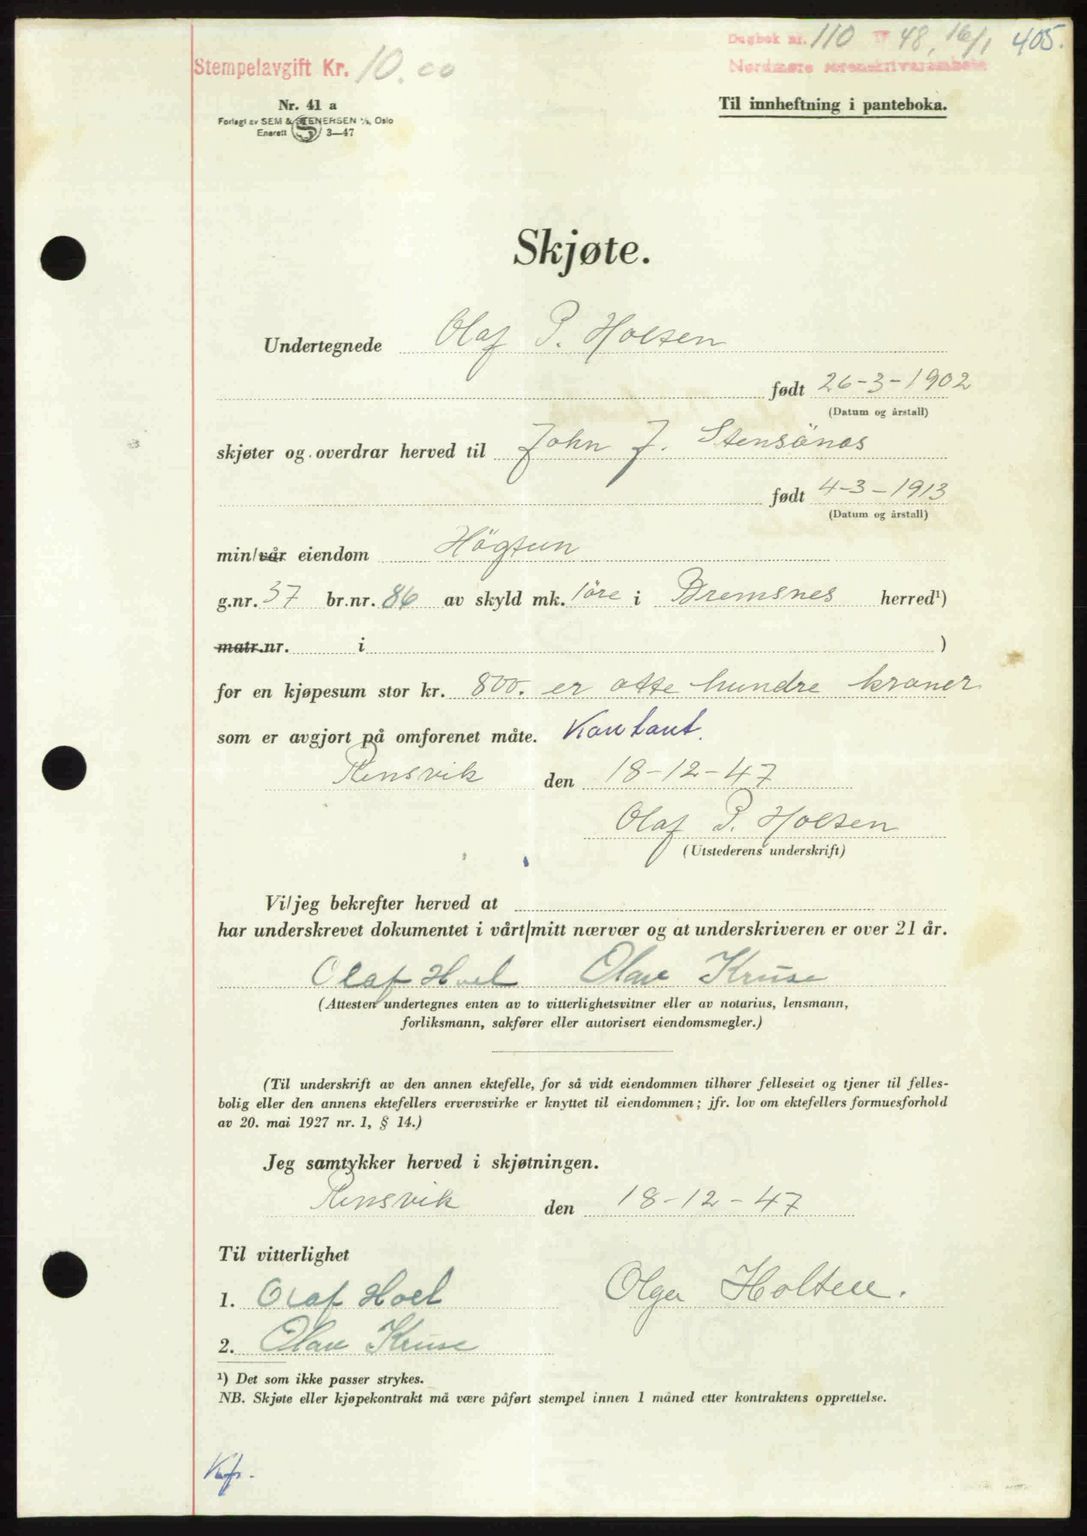 Stempelavgift Kr. 10.00
Dagbok nr. 110 19 48, 16/1 405.
Nordmøre sorenskriverembete
Nr. 41 a
Forlagt av SEM & STENERSEN A/S, Oslo
Enerett 3—47
Til innheftning i panteboka.
Skjøte.
Undertegnede Olaf P. Holten
født 26-3-1902
(Datum og årstall)
skjøter og overdrar herved til John J. Stensönes
født 4-3-1913
(Datum og årstall)
min/vår eiendom Högtun
g.nr. 37 br.nr. 86 av skyld mk. 1öre i Bremsnes herred¹)
matr.nr. i )
for en kjøpesum stor kr. 800. er otte hundre kroner
som er avgjort på omforenet måte. Kontant.
Rensvik den 18-12-47
Olaf P. Holten
(Utstederens underskrift)
Vi/jeg bekrefter herved at
har underskrevet dokumentet i vårt/mitt nærvær og at underskriveren er over 21 år.
Olaf Hoel Olav Kruse
(Attesten undertegnes enten av to vitterlighetsvitner eller av notarius, lensmann,
forliksmann, sakfører eller autorisert eiendomsmegler.)
(Til underskrift av den annen ektefelle, for så vidt eiendommen tilhører felleseiet og tjener til felles-
bolig eller den annens ektefellers ervervsvirke er knyttet til eiendommen; jfr. lov om ektefellers formuesforhold
av 20. mai 1927 nr. 1, § 14.)
Jeg samtykker herved i skjøtningen.
Rensvik den 18-12-47
Til vitterlighet
1. Olaf Hoel Olga Holten.
2. Olav Kruse
¹) Det som ikke passer strykes.
NB. Skjøte eller kjøpekontrakt må være påført stempel innen 1 måned etter kontraktens opprettelse.